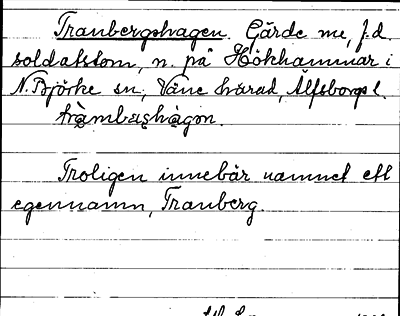 Tranbergshagen. Gärde me, f.d.
soldatstom, n. på Hökhammar i
N. Björke sn, Väne härad, Älfsborgs l.
Troligen innebär namnet ett
egennamn, Tranberg.